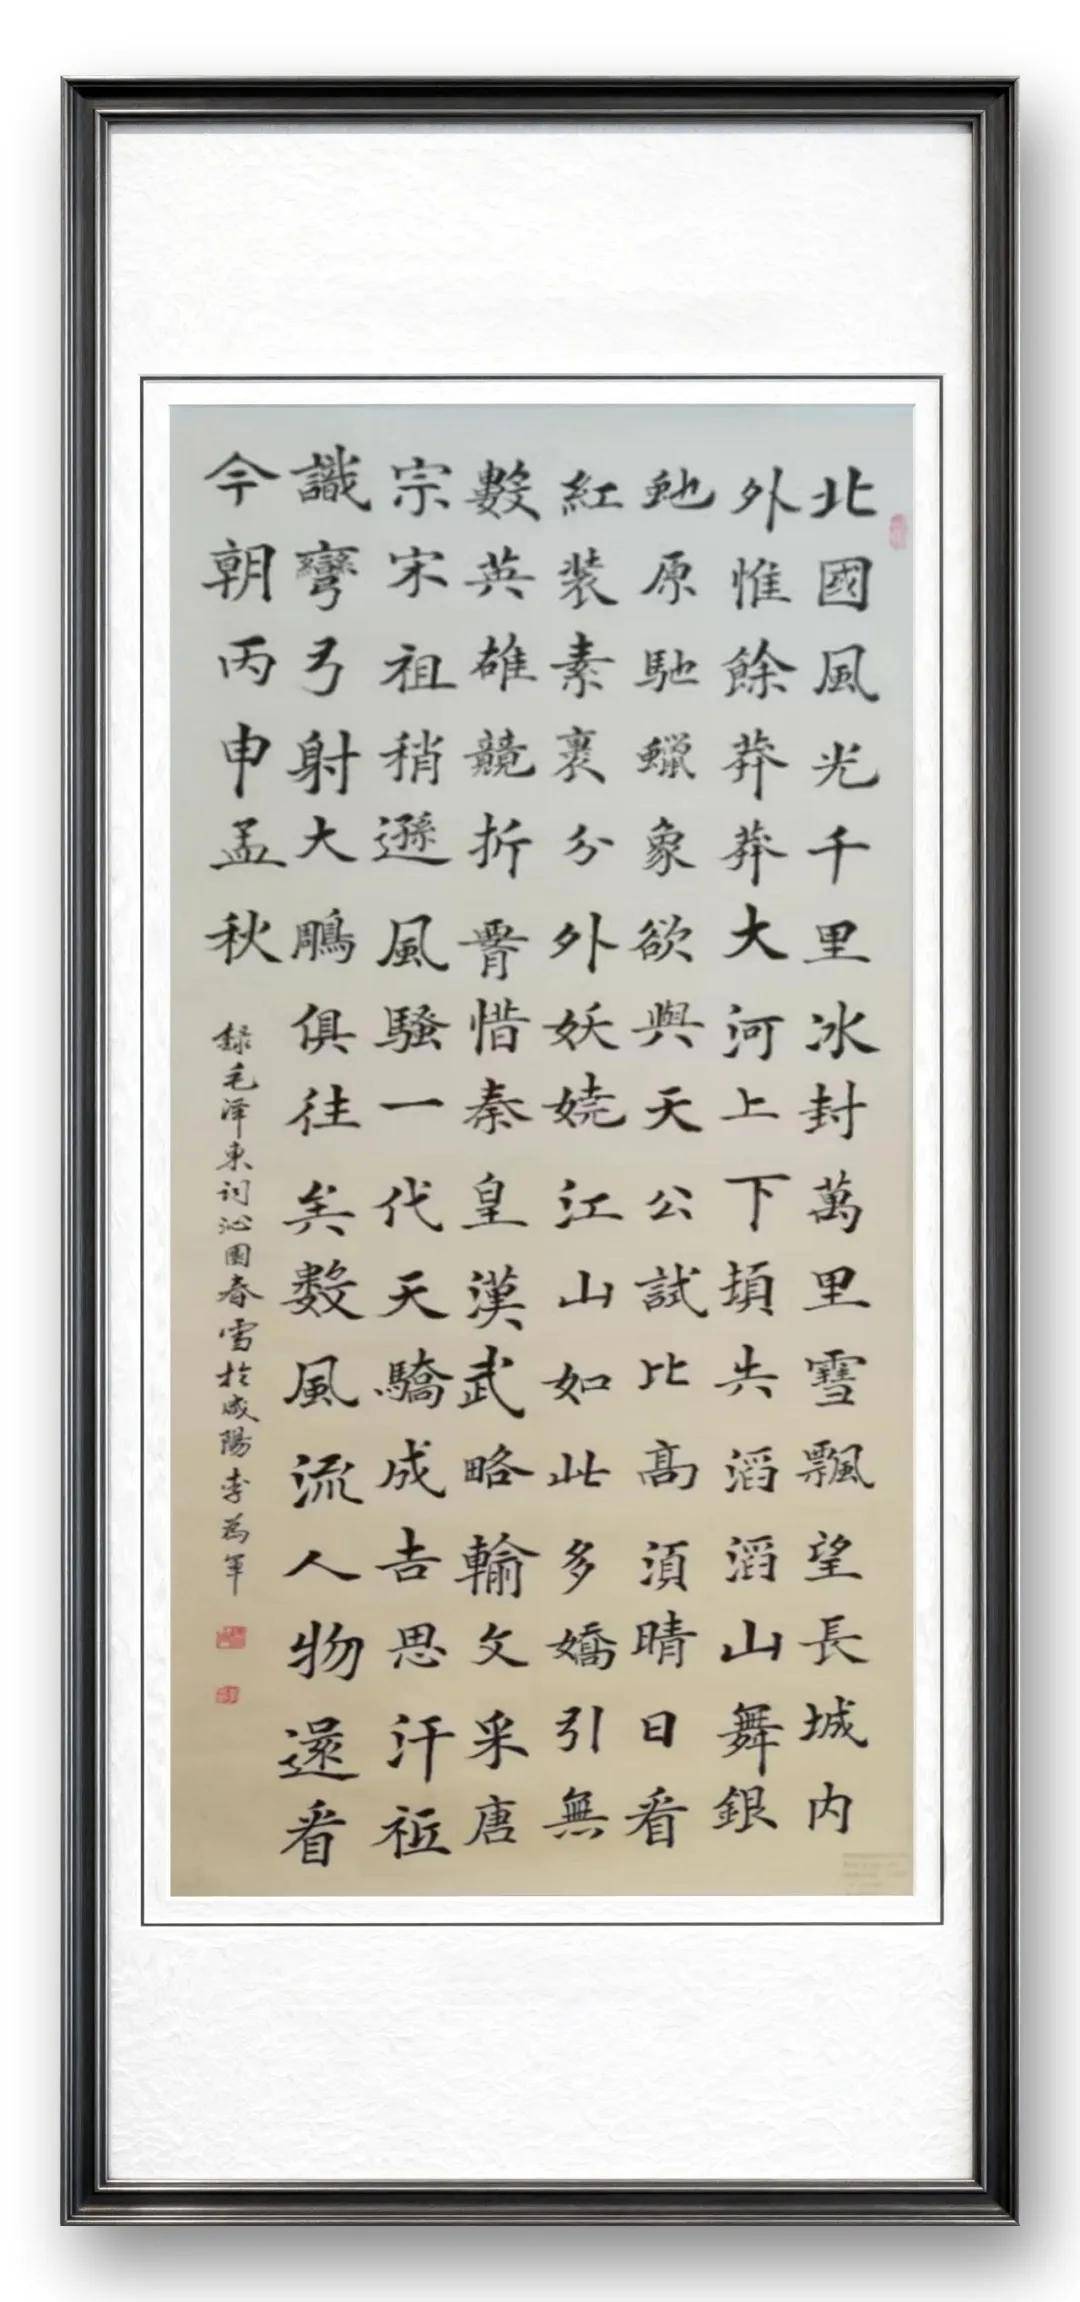 北國風光千里冰封萬里雪飄望長城内
外惟餘莽莽大河上下頓失滔滔山舞銀
虵原馳蠟象欲與天公試比高須晴日看
紅装素裹分外妖娆江山如此多嬌引無
數英雄競折腰惜秦皇漢武略輸文采唐
宗宋祖稍遜風騷一代天驕成吉思汗祇
識彎弓射大鵰俱往矣數風流人物還看
今朝丙申孟秋
録毛泽東词沁園春雪於咸陽李為軍